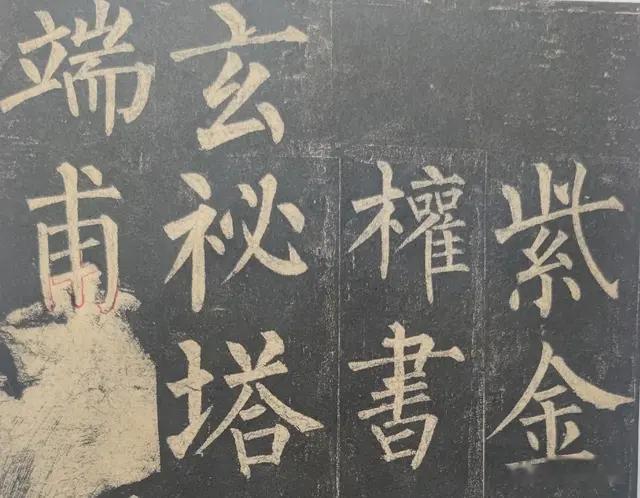 紫金
權書
玄祕塔
端甫